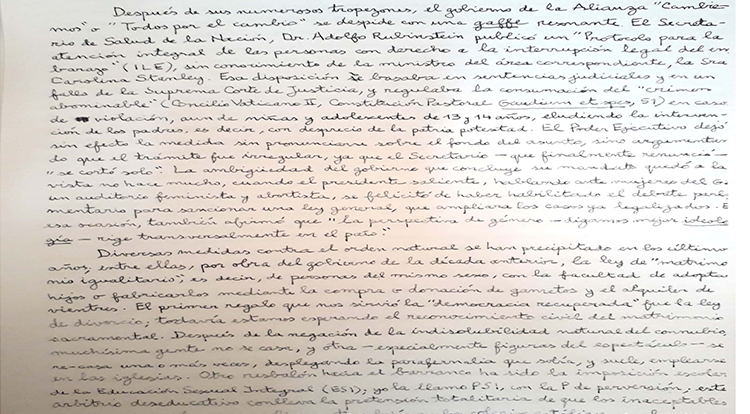 Después de sus numerosos tropezones, el gobierno de la Alianza "Cambie-
mos" o "Todos por el cambio" se despide con una gaffe resonante. El Secreta-
rio de Salud de la Nación, Dr. Adolfo Rubinstein publicó un "Protocolo para la
atención integral de las personas con derecho a la interrupción legal del em
barazo" (ILE), sin conocimiento de la ministro del área correspondiente, la Sra
Carolina Stanley. Esa disposición se basaba en sentencias judiciales y en un
fallo de la Suprema Corte de Justicia, y regulaba la consumación del "crimen
abominable" (Concilio Vaticano II, Constitución Pastoral Gaudium et spes, 51) en caso
de violación, aun de niñas y adolescentes de 13 y 14 años, eludiendo la interven-
ción de los padres, es decir, con desprecio de la patria potestad. El Poder Ejecutivo dejó
sin efecto la medida sin pronunciarse sobre el fondo del asunto, sino argumentan
do que el trámite fue irregular, ya que el Secretario — que finalmente renunció —
"se cortó solo". La ambigüedad del gobierno que concluye su mandato quedó a la
vista no hace mucho, cuando el presidente saliente, hablando ante mujeres del G.
un auditorio feminista y abortista, se felicitó de haber habilitado el debate parla
mentario para sancionar una ley general, que ampliara los casos ya legalizados. E
esa ocasión, también afirmó que "la perspectiva de género — digamos mejor ideolo
gía — rige transversalmente en el país."
Diversas medidas contra el orden natural se han precipitado en los últimos
años, entre ellas, por obra del gobierno de la década anterior, la ley de "matrimo
nio igualitario", es decir, de personas del mismo sexo, con la facultad de adoptar
hijos o fabricarlos mediante la compra o donación de gametos y el alquiler de
vientres. El primer regalo que nos sirvió la "democracia recuperada" fue la ley
de divorcio; todavía estamos esperando el reconocimiento civil del matrimonio
sacramental. Después de la negación de la indisolubilidad natural del connubio,
muchísima gente no se casa, y otra — especialmente figuras del espectáculo — se
re-casa una o más veces, desplegando la parafernalia que solía, y suele, emplearse
en las iglesias. Otro resbalón hacia el barranco ha sido la imposición escolar
de la Educación Sexual Integral (ESI); yo la llamo PSI, con la P de perversión, este
arbitrio deseducativo conlleva la pretensión totalitaria de que los inaceptables